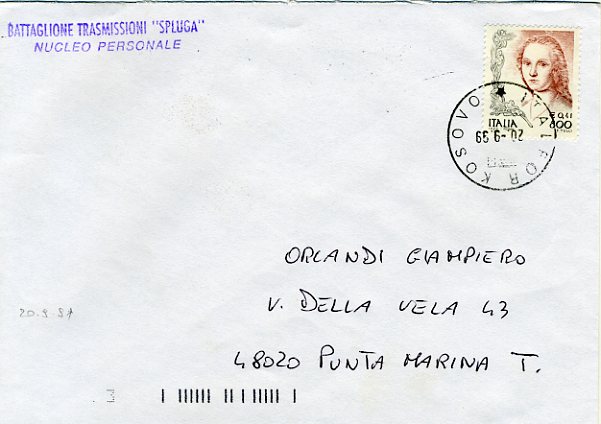 BATTAGLIONE TRASMISSIONI "SPLUGA"
NUCLEO PERSONALE
ITALIA
800
ITALFOR KOSOVO
20-9 99
ORLANDI GIAMPIERO
V. DELLA VELA 43
48020 PUNTA MARINA T.
20.9.97